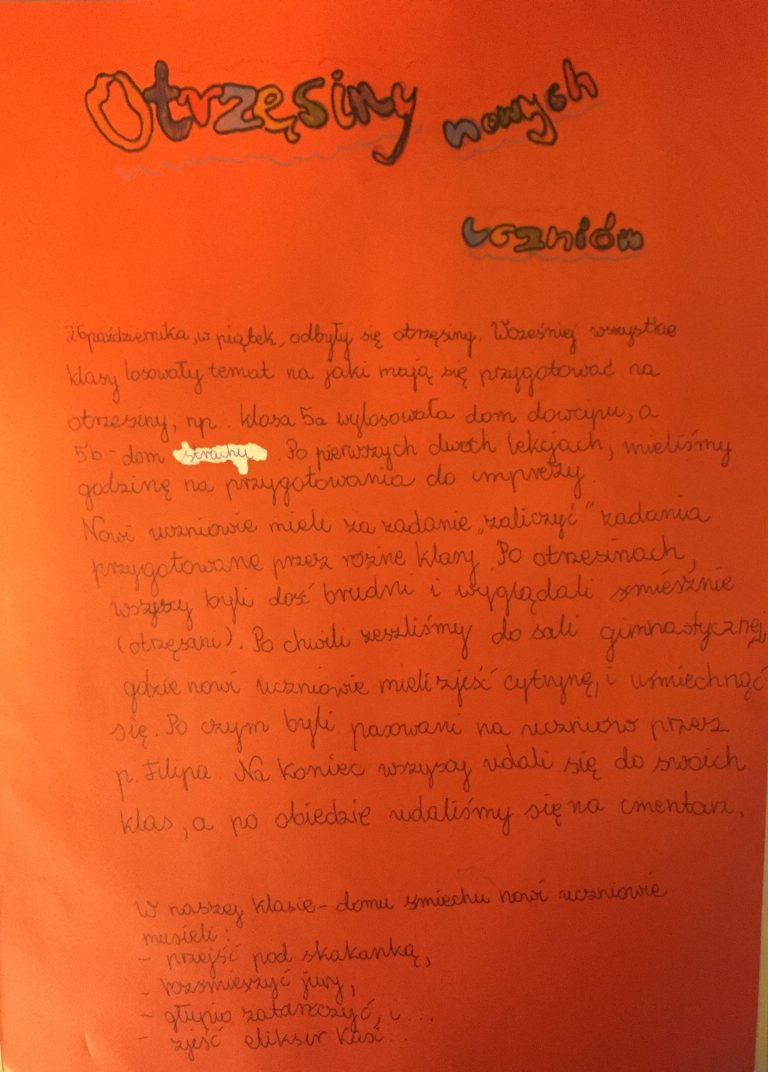 Otrzęsiny nowych
uczniów
26 października, w piątek, odbyły się otrzęsiny. Wcześniej wszystkie
klasy losowały temat na jaki mają się przygotować na
otrzęsiny, np. klasa 5a wylosowała dom dowcipu, a
5b - dom strachu. Po pierwszych dwóch lekcjach, mieliśmy
godzinę na przygotowania do imprezy.
Nowi uczniowie mieli za zadanie „zaliczyć” zadania
przygotowane przez różne klasy. Po otrzęsinach,
wszyscy byli dość brudni i wyglądali śmiesznie
(otrzęsani). Po chwili zeszliśmy do sali gimnastycznej,
gdzie nowi uczniowie mieli zjeść cytrynę, i uśmiechnąć
się. Po czym byli pasowani na uczniów przez
p. Filipa. Na koniec wszyscy udali się do swoich
klas, a po obiedzie udaliśmy się na cmentarz.
W naszej klasie - domu śmiechu nowi uczniowie
musieli:
- przejść pod skakanką,
- rozśmieszyć jury,
- głupio zatańczyć, i ...
- zjeść eliksir Kasi...